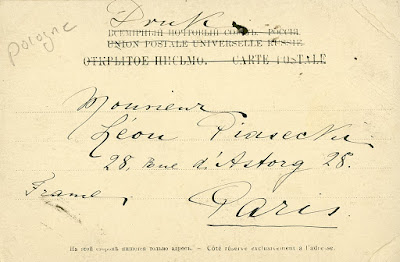 Druk
pologne
ВСЕМІРНЫЙ ПОЧТОВЫЙ СОЮЗЪ. РОССІЯ
UNION POSTALE UNIVERSELLE RUSSIE.
ОТКРЫТОЕ ПИСЬМО. — CARTE POSTALE
Monsieur
Léon Piasecki
28, rue d'Astorg 28.
France
Paris.
На этой сторонѣ пишется только адресъ. — Côté réservé exclusivement à l'adresse.